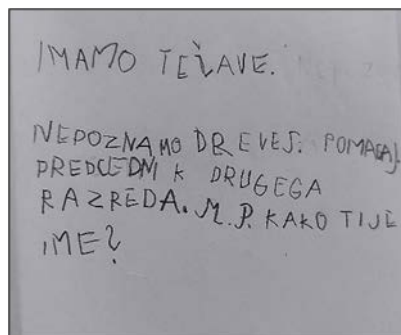 IMAMO TEŽAVE.
NEPOZNAMO DREVES. POMAGAJ.
PREDCEDNIK DRUGEGA
RAZREDA. M.P. KAKO TIJE
IME?